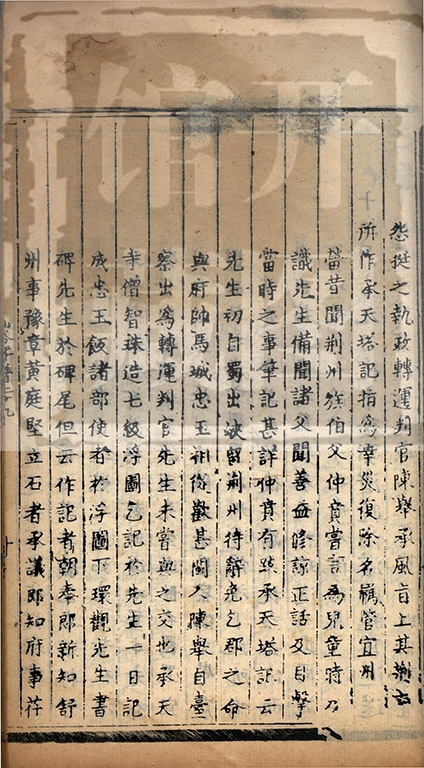 怨挺之執政轉運判官陳舉承風旨上其荆南
所作承天塔記指為幸災復除名羈管宜州
嘗昔聞荆州族伯父仲賁嘗言為兒童時乃
識先生備聞諸父聞善益修諒正話及目擊
當時之事筆記甚詳仲賁有跋承天塔記云
先生初自蜀出峽留荆州待辭免乞郡之命
與府帥馬城忠玉相從歡甚閩人陳舉自臺
察出為轉運判官先生未嘗與之交也承天
寺僧智珠造七級浮圖乞記於先生一日記
成忠玉飯諸部使者於浮圖下環觀先生書
碑先生於碑尾但云作記者朝奉郎新知舒
州事豫章黃庭堅立石者承議郎知府事茌